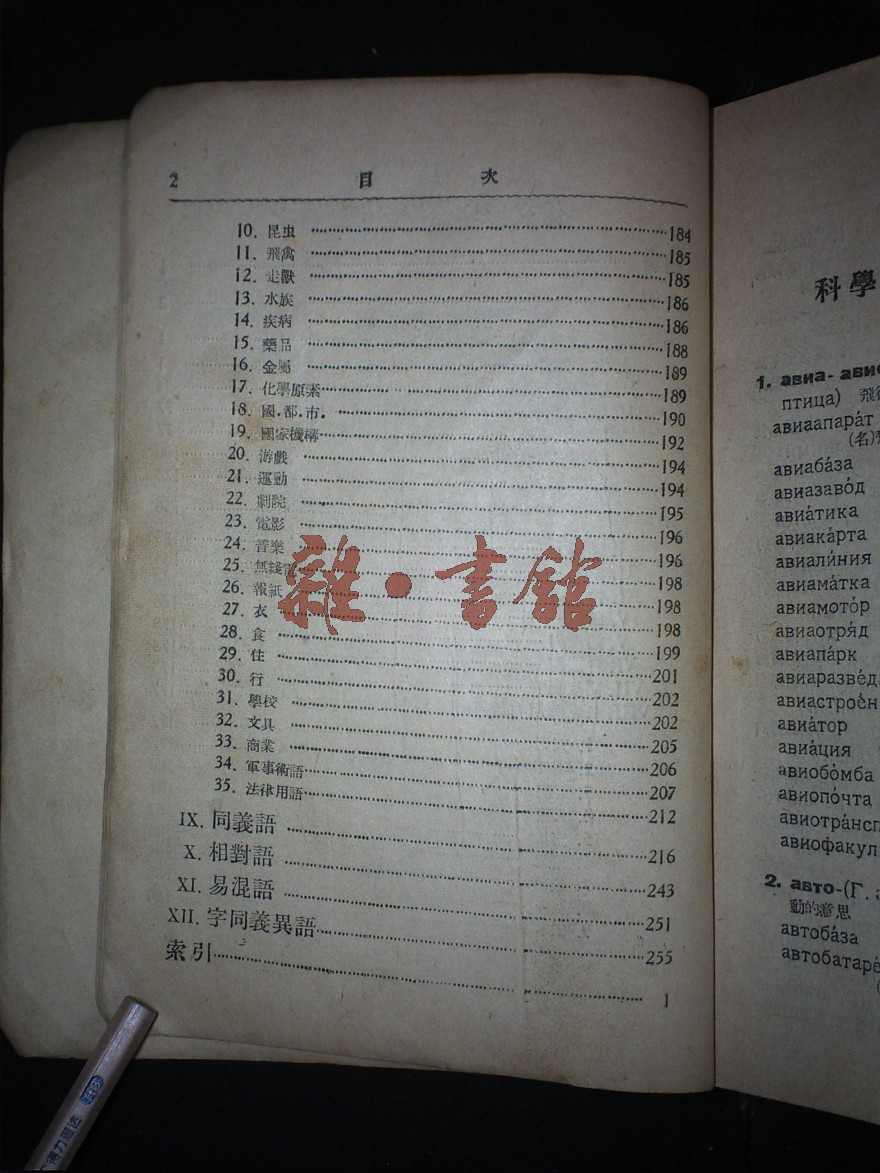 2 目 次
10. 昆虫 ……184
11. 飛禽 ……185
12. 走獸 ……185
13. 水族 ……186
14. 疾病 ……186
15. 藥品 ……188
16. 金屬 ……189
17. 化學原素……189
18. 國.都.市. ……190
19. 國家機構……192
20. 游戲 ……194
21. 運動 ……194
22. 劇院 ……195
23. 電影 ……196
24. 音樂 ……196
25. 無綫電……198
26. 報紙 ……198
27. 衣 ……198
28. 食 ……199
29. 住 ……201
30. 行 ……202
31. 學校 ……202
32. 文具 ……205
33. 商業 ……206
34. 軍事術語……207
35. 法律用語……212
IX. 同義語 ……216
X. 相對語 ……243
XI. 易混語 ……251
XII. 字同義異語……255
索引……1
雜·書館
科學
1. авиа- авио
птица)
авиаапара́т
(名)
авиаба́за
авиазаво́д
авиа́тика
авиака́рта
авиали́ния
авиама́тка
авиамото́р
авиаотря́д
авиапа́рк
авиаразве́д
авиастрое́н
авиа́тор
авиа́ция
авиобо́мба
авиопо́чта
авиотра́нсп
авиофакул
2. авто-(Г.
動的意思
автоба́за
автобатаре́
得力